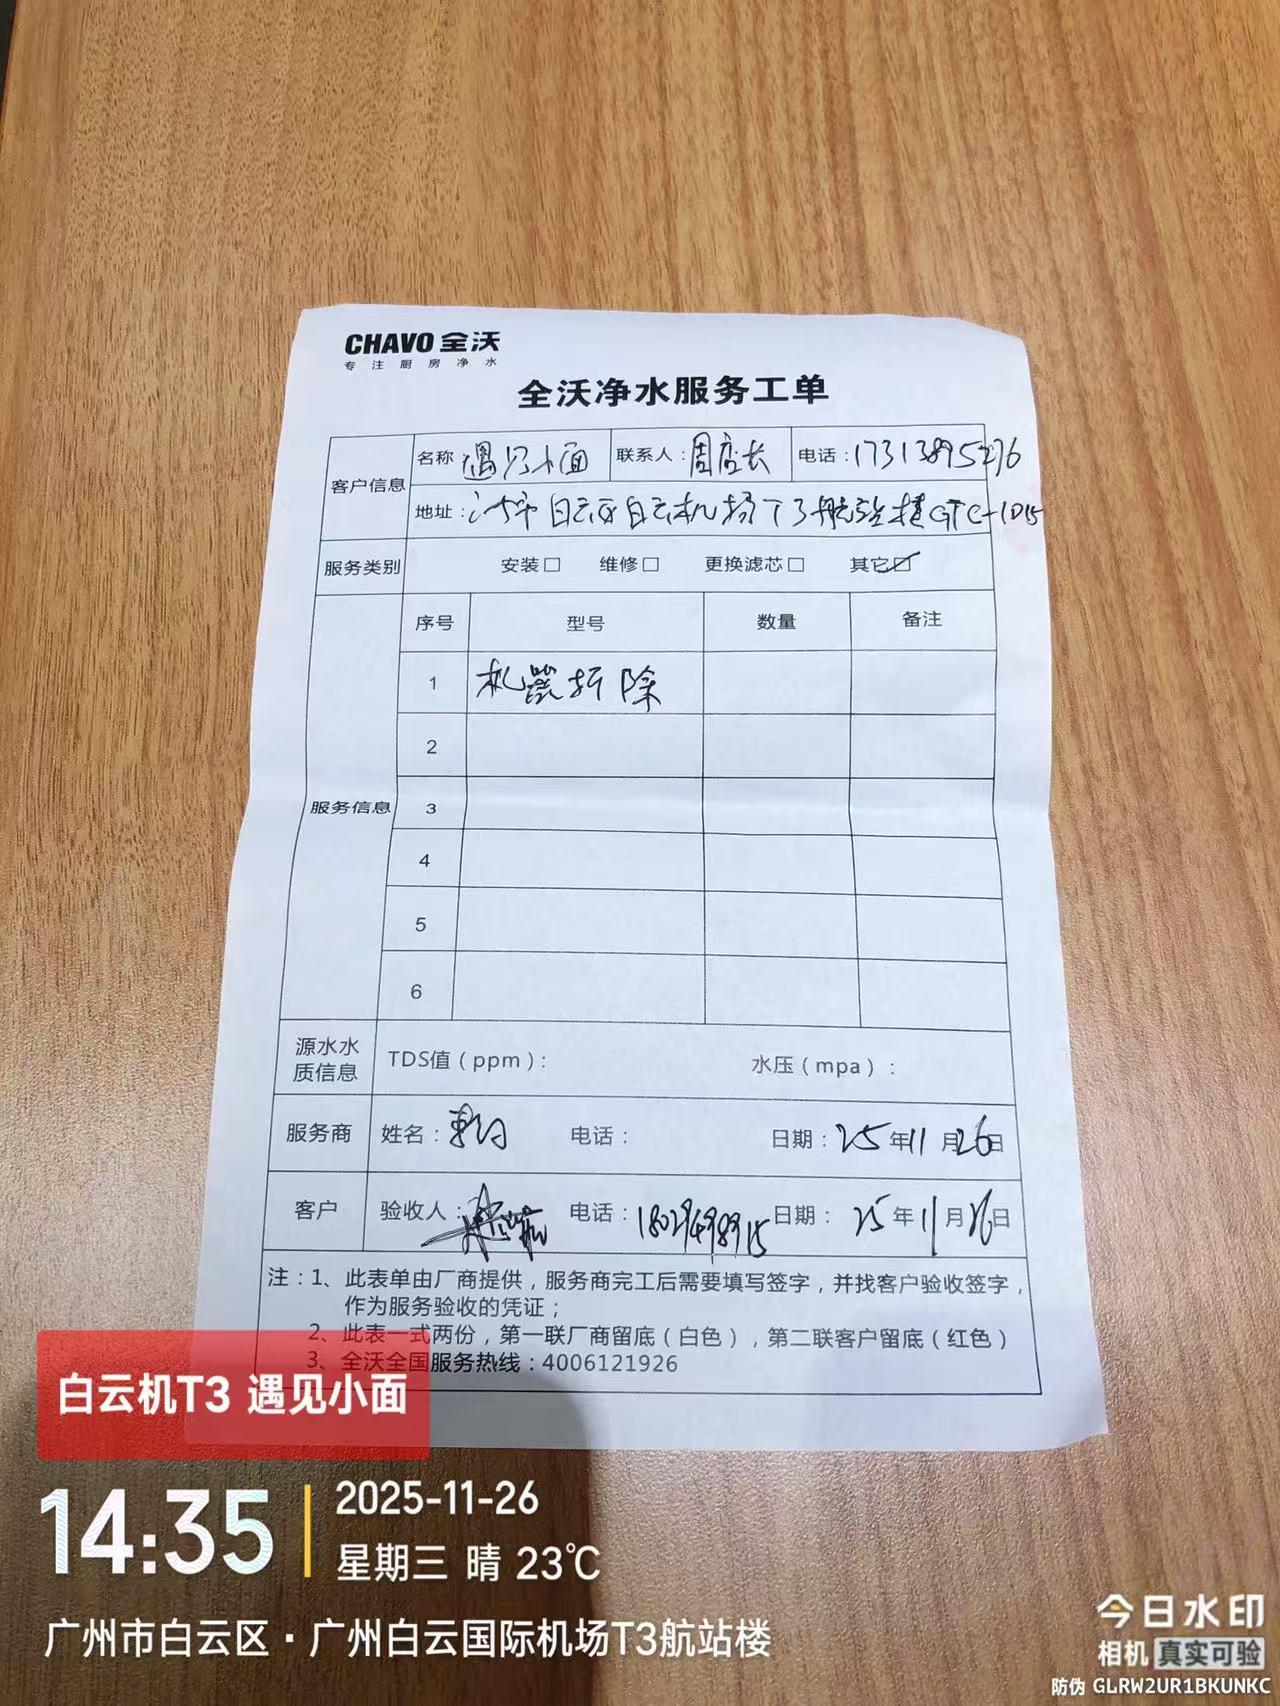 CHAVO 全沃
专注厨房净水
全沃净水服务工单
客户信息 名称 遇见小面 联系人：周店长 电话：17313895276
地址： 白云区白云机场T3航站楼GTC-1D15
服务类别 安装□ 维修□ 更换滤芯□ 其它☑
服务信息 序号 型号 数量 备注
1 机器拆除
2
3
4
5
6
源水水质信息 TDS值（ppm）： 水压（mpa）：
服务商 姓名： 电话： 日期：25年11月26日
客户 验收人： 电话：18029498915 日期：25年11月26日
注：1、此表单由厂商提供，服务商完工后需要填写签字，并找客户验收签字，
作为服务验收的凭证；
2、此表一式两份，第一联厂商留底（白色），第二联客户留底（红色）
3、全沃全国服务热线：4006121926
白云机T3 遇见小面
14:35
2025-11-26
星期三 晴 23℃
广州市白云区·广州白云国际机场T3航站楼
今日水印
相机 真实可验
防伪 GLRW2UR1BKUNKC